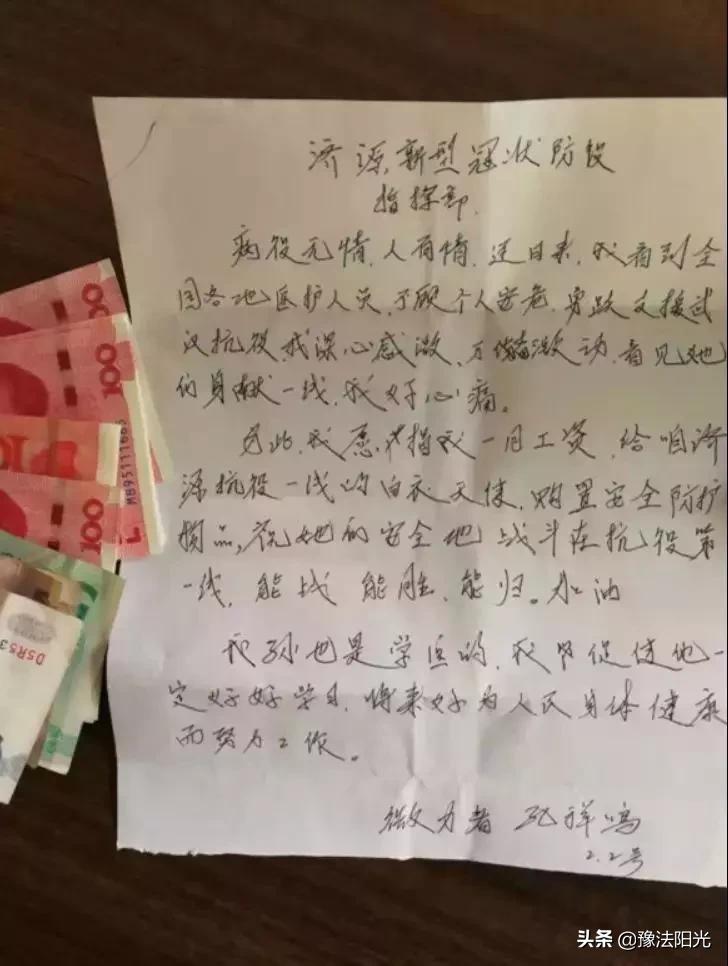 济源新型冠状防役
指挥部.
病役无情.人有情.近日来.我看到全
国各地医护人员.不顾个人安危.勇跃支援武
汉抗役.我深心感激.万激动.看见她
们身献一线.我好心痛。
为此.我愿捐我一月工资.给咱济
源抗役一线的白衣天使.购置安全防护
物品,祝她们安全地战斗在抗役第
一线.能战能胜.能归。加油
我孙也是学医的.我督促使他一
定好好学习.将来好为人民身体健康
而努力工作。
微力者 祥鸣
2.2号
100
100
100
100
MB95111663
DSR53
头条 @豫法阳光